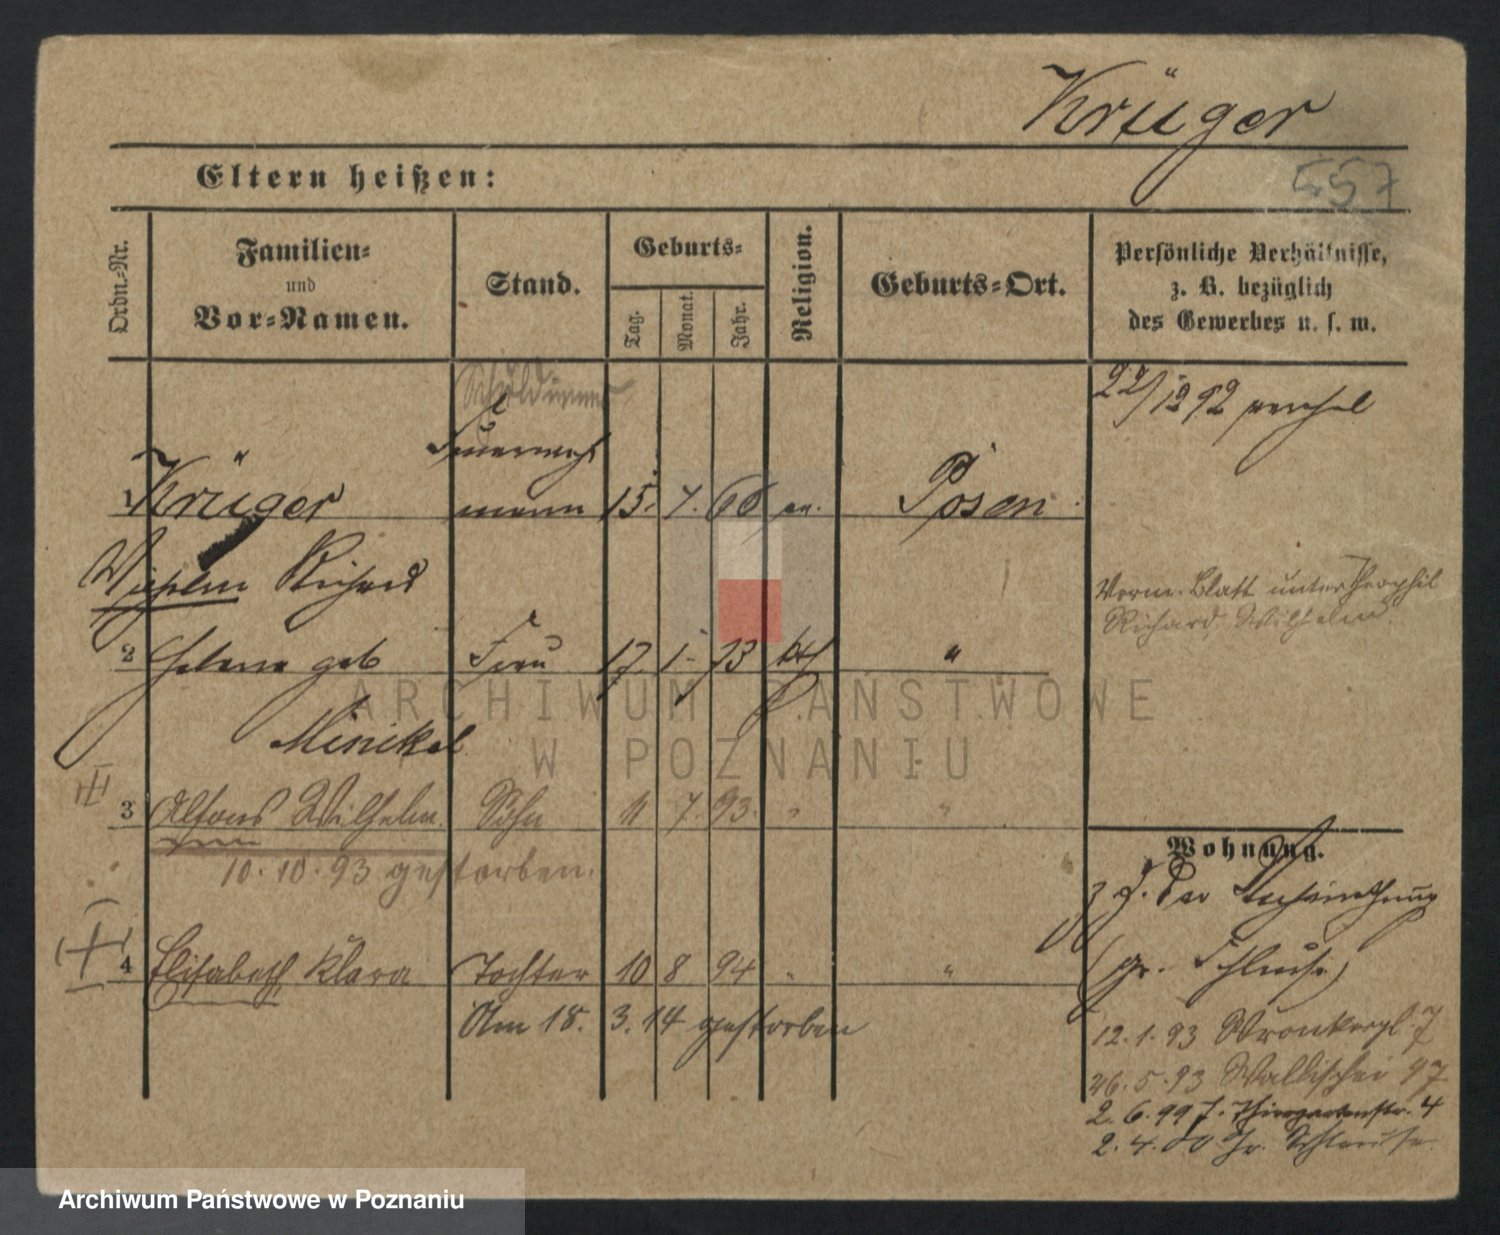 Krüger
557
Eltern heißen:
Ordn.-Nr.
Familien-
und
Vor-Namen.
Stand.
Geburts-
Tag.
Monat.
Jahr.
Religion.
Geburts-Ort.
Persönliche Verhältnisse,
z. B. bezüglich
des Gewerbes u. s. w.
Feuerwehr
1 Krüger mann 15. 7. 68 ev. Posen
Wilhelm Richard
2 Helene geb Frau 17 1. 73 kth "
Minikel
3 Alfons Wilhelm. Sohn 11 7. 93. " "
10. 10. 93 gestorben.
4 Elisabeth Klara Tochter 10 8 94 " "
Am 18. 3. 14 gestorben
Vorne. Blatt unter Theophil
Richard, Wilhelm.
Wohnung.
(gr. Schleuse)
12. 1. 93 Wronkerpl. 7
26. 5. 93 Wallischei 97
2. 6. 99 Thiergartenstr. 4
2. 4. 00 Gr. Schleuse
ARCHIWUM PAŃSTWOWE
W POZNANIU
Archiwum Państwowe w Poznaniu